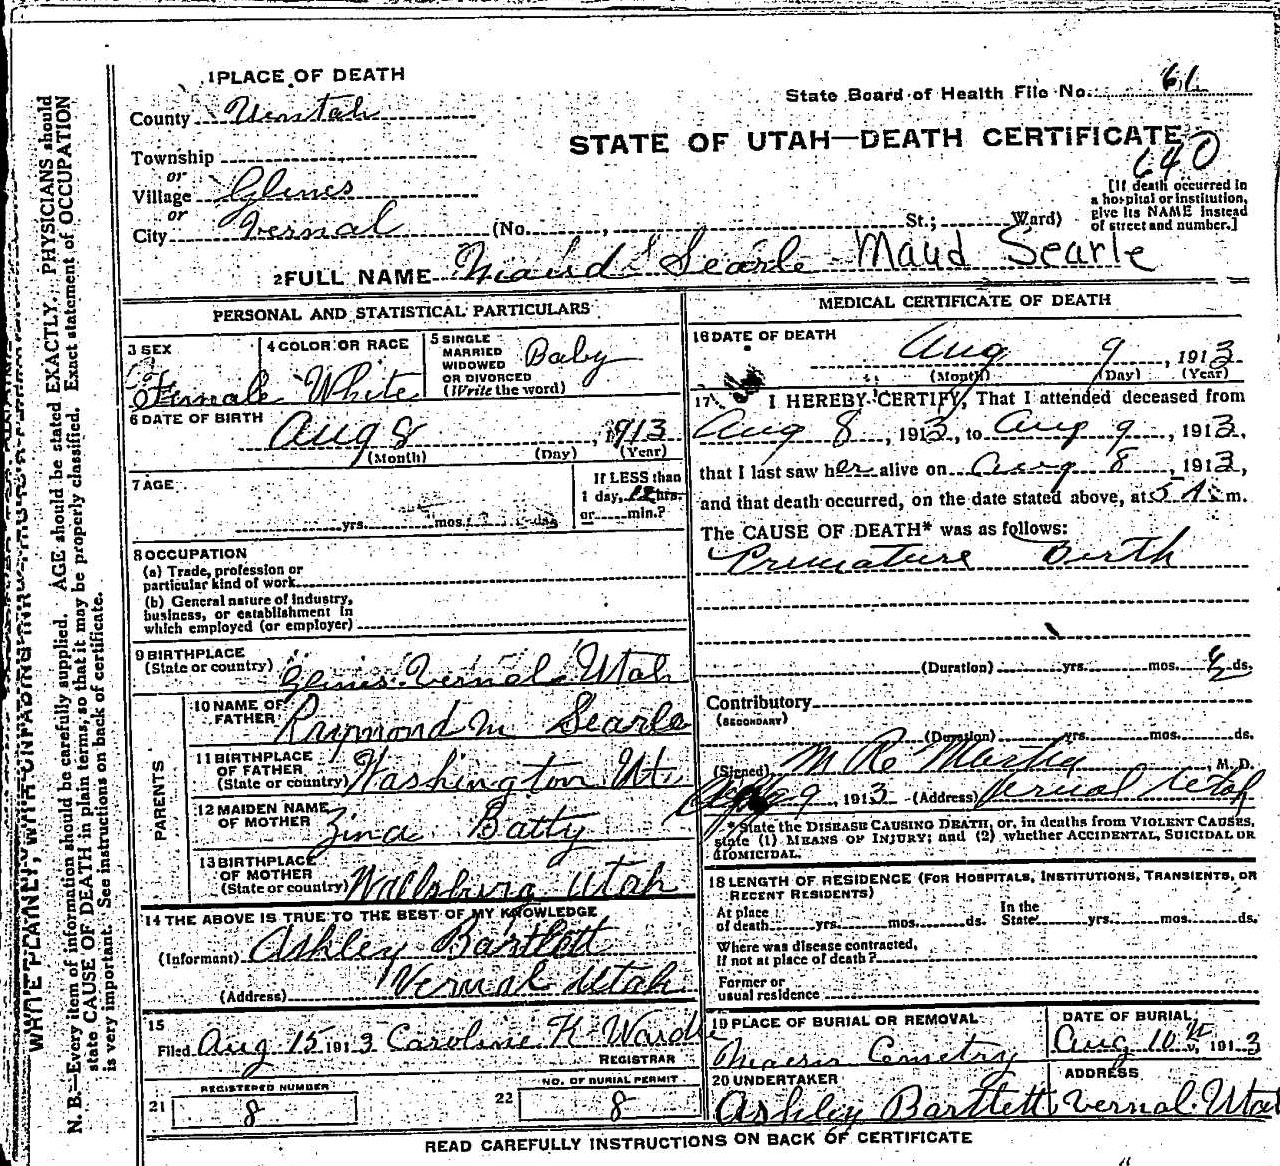 1 PLACE OF DEATH
County Uintah
Township
or
Village Glines
or
City Vernal (No. , St.; Ward)
State Board of Health File No. 61
STATE OF UTAH—DEATH CERTIFICATE
640
[If death occurred in
a hospital or institution,
give its NAME instead
of street and number.]
2 FULL NAME Maud Searle Maud Searle
PERSONAL AND STATISTICAL PARTICULARS
3 SEX
Female
4 COLOR OR RACE
White
5 SINGLE
MARRIED
WIDOWED
OR DIVORCED
(Write the word)
Baby
6 DATE OF BIRTH
Aug 8, 1913
(Month) (Day) (Year)
7 AGE
yrs. mos. ds.
If LESS than
1 day, 12 hrs.
or min.?
8 OCCUPATION
(a) Trade, profession or
particular kind of work
(b) General nature of industry,
business, or establishment in
which employed (or employer)
9 BIRTHPLACE
(State or country) Glines Vernal Utah
PARENTS
10 NAME OF
FATHER Raymond M Searle
11 BIRTHPLACE
OF FATHER
(State or country) Washington Ut
12 MAIDEN NAME
OF MOTHER Zina Batty
13 BIRTHPLACE
OF MOTHER
(State or country) Wallsburg Utah
14 THE ABOVE IS TRUE TO THE BEST OF MY KNOWLEDGE
(Informant) Ashley Bartlett
(Address) Vernal Utah
15
Filed Aug 15 1913 Caroline K Warde
REGISTRAR
21 REGISTERED NUMBER
8
22 NO. OF BURIAL PERMIT
8
MEDICAL CERTIFICATE OF DEATH
16 DATE OF DEATH
Aug 9, 1913
(Month) (Day) (Year)
17 I HEREBY CERTIFY, That I attended deceased from
Aug 8, 1913, to Aug 9, 1913,
that I last saw her alive on Aug 8, 1913,
and that death occurred, on the date stated above, at 5 A. m.
The CAUSE OF DEATH* was as follows:
Premature Birth
(Duration) yrs. mos. ds.
Contributory
(SECONDARY)
(Duration) yrs. mos. ds.
(Signed) M. D.
9, 1913 (Address) Vernal Utah
* State the DISEASE CAUSING DEATH, or, in deaths from VIOLENT CAUSES,
state (1) MEANS OF INJURY; and (2) whether ACCIDENTAL, SUICIDAL OR
HOMICIDAL.
18 LENGTH OF RESIDENCE (FOR HOSPITALS, INSTITUTIONS, TRANSIENTS, OR
RECENT RESIDENTS)
At place
of death yrs. mos. ds.
In the
State yrs. mos. ds.
Where was disease contracted,
if not at place of death?
Former or
usual residence
19 PLACE OF BURIAL OR REMOVAL
Cemetry
DATE OF BURIAL
Aug 10th, 1913
20 UNDERTAKER
Ashley Bartlett
ADDRESS
Vernal Utah
READ CAREFULLY INSTRUCTIONS ON BACK OF CERTIFICATE
WRITE PLAINLY, WITH UNFADING INK
N. B.—Every item of information should be carefully supplied. AGE should be stated EXACTLY. PHYSICIANS should
state CAUSE OF DEATH in plain terms, so that it may be properly classified. Exact statement of OCCUPATION
is very important. See instructions on back of certificate.